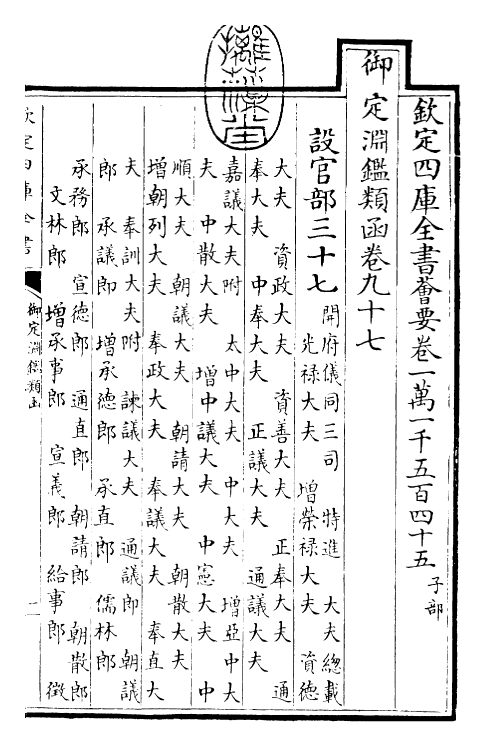 摛藻堂
欽定四庫全書薈要卷一萬一千五百四十五 子部
御定淵鑑類函卷九十七
設官部三十七
開府儀同三司 特進 大夫總載
光祿大夫 增榮祿大夫 資德
大夫 資政大夫 資善大夫 正奉大夫 通
奉大夫 中奉大夫 正議大夫 通議大夫
嘉議大夫附 太中大夫 中大夫 增亞中大
夫 中散大夫 增中議大夫 中憲大夫 中
順大夫 朝議大夫 朝請大夫 朝散大夫
增朝列大夫 奉政大夫 奉議大夫 奉直大
夫 奉訓大夫附 諫議大夫 通議郎 朝議
郎 承議郎 增承德郎 承直郎 儒林郎
承務郎 宣德郎 通直郎 朝請郎 朝散郎
文林郎 增承事郎 宣義郎 給事郎 徵
欽定四庫全書
御定淵鑑類函